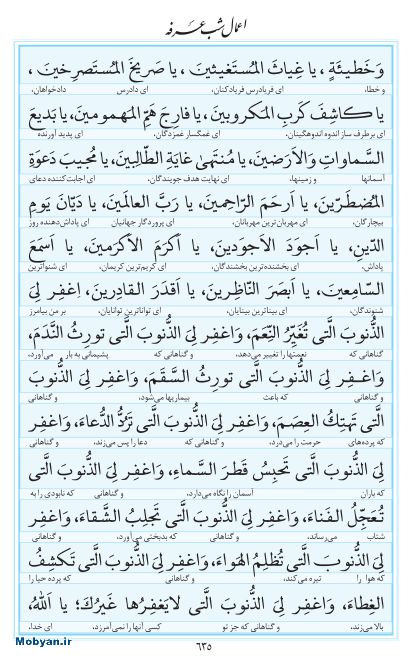 اعمال شب عرفه
وَخَطیـئَةٍ ، یا غِیاثَ المُستَغیثینَ ، یا صَریخَ المُستَصرِخینَ ،
و خطا، ای فریادرس فریادکنان، ای دادرس دادخواهان،
یا کاشِفَ کَربِ المَکروبینَ، یا فارِجَ هَمِّ المَهمومینَ، یا بَدیعَ
ای برطرف ساز اندوه اندوهگینان، ای غمگسار غمزدگان، ای پدید آورنده
السَّماواتِ وَالاَرَضینَ، یا مُنتَهىٰ غایَةِ الطّالِبینَ، یا مُجیبَ دَعوَةِ
آسمانها و زمینها، ای نهایت هدف جویندگان، ای اجابت‌کننده دعای
المُضطَرّینَ، یا اَرحَمَ الرّاحِمینَ، یا رَبَّ العالَمینَ، یا دَیّانَ یَومِ
بیچارگان، ای مهربان‌ترین مهربانان، ای پروردگار جهانیان ای پاداش‌دهنده روز
الدّینِ، یا اَجوَدَ الاَجوَدینَ، یا اَکرَمَ الاَکرَمینَ، یا اَسمَعَ
پاداش، ای بخشنده‌ترین بخشندگان، ای کریم‌ترین کریمان، ای شنواترین
السّامِعینَ، یا اَبصَرَ النّاظِرینَ، یا اَقدَرَ القادِرینَ، اِغفِر لِیَ
شنوندگان، ای بیناترین بینایان، ای تواناترین توانایان، بر من بیامرز
الذُّنوبَ الَّتی تُغَیِّرُ النِّعَمَ، وَاغفِر لِیَ الذُّنوبَ الَّتی تورِثُ النَّدَمَ،
گناهانی که نعمتها را تغییر می‌دهد، و گناهانی که پشیمانی به بار می‌آورد،
وَاغـفِر لِیَ الذُّنوبَ الَّتی تورِثُ السَّقَمَ، وَاغفِر لِیَ الذُّنوبَ
و گناهانی که باعث بیماریها می‌شود، و گناهانی
الَّتی تَهتِکُ العِصَمَ، وَاغفِر لِیَ الذُّنوبَ الَّتی تَرُدُّ الدُّعاءَ، وَاغفِر
که پرده‌های حرمت را می‌درد، و گناهانی که دعا را پس می‌زند، و گناهانی
لِیَ الذُّنوبَ الَّتی تَحبِسُ قَطرَ السَّماءِ، وَاغفِر لِیَ الذُّنوبَ الَّتی
که باران آسمان را نگاه می‌دارد، و گناهانی که نابودی را به
تُعَجِّلُ الفَناءَ، وَاغفِر لِیَ الذُّنوبَ الَّتی تَجلِبُ الشَّقاءَ، وَاغفِر
شتاب می‌رساند، و گناهانی که بدبختی می‌آورد، و گناهانی
لِیَ الذُّنوبَ الَّتی تُظلِمُ الهَواءَ، وَاغفِر لِیَ الذُّنوبَ الَّتی تَکشِفُ
که هوا را تیره می‌کند، و گناهانی که پرده حیا را
الغِطاءَ، وَاغفِر لِیَ الذُّنوبَ الَّتی لایَغفِرُها غَیرُکَ؛ یا اَللهُ،
بالا می‌زند، و گناهانی که جز تو کسی آنها را نمی‌آمرزد، ای خدا،
۶۳۵
Mobyan.ir